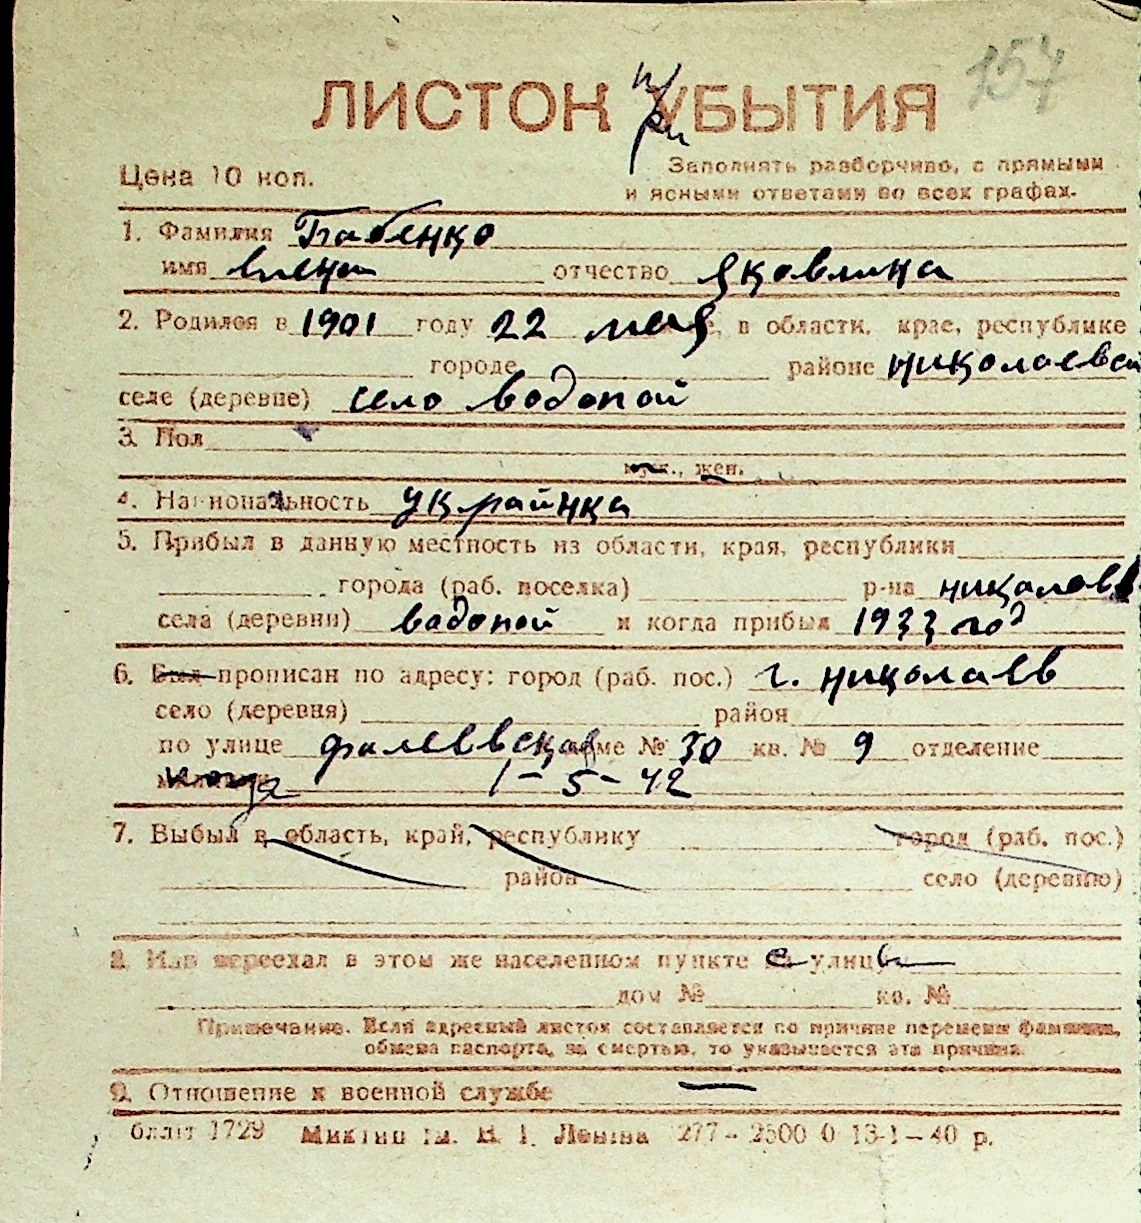 157
ЛИСТОК при УБЫТИЯ
Цена 10 коп.
Заполнять разборчиво, с прямыми
и ясными ответами во всех графах.
1. Фамилия Бабенко
имя Елена отчество Яковлина
2. Родился в 1901 году 22 мая, в области, крае, республике
городе районе николаевск
селе (деревне) село водопой
3. Пол
муж., жен.
4. Национальность украинка
5. Прибыл в данную местность из области, края, республики
города (раб. поселка) р-на николаев
села (деревни) вадопой и когда прибыл 1933 год
6. Был прописан по адресу: город (раб. пос.) г. николаев
село (деревня) район
по улице фалеевская доме № 30 кв. № 9 отделение
когда 1-5-42
7. Выбыл в область, край, республику город (раб. пос.)
район село (деревню)
8. Или переехал в этом же населенном пункте на улицу
дом № кв. №
Примечание. Если адресный листок составляется по причине перемены фамилии,
обмена паспорта, за смертью, то указывается эта причина
9. Отношение к военной службе —
блліт 1729 Миктип ім. В. І. Леніна 277 – 2500 0 13-1 – 40 р.